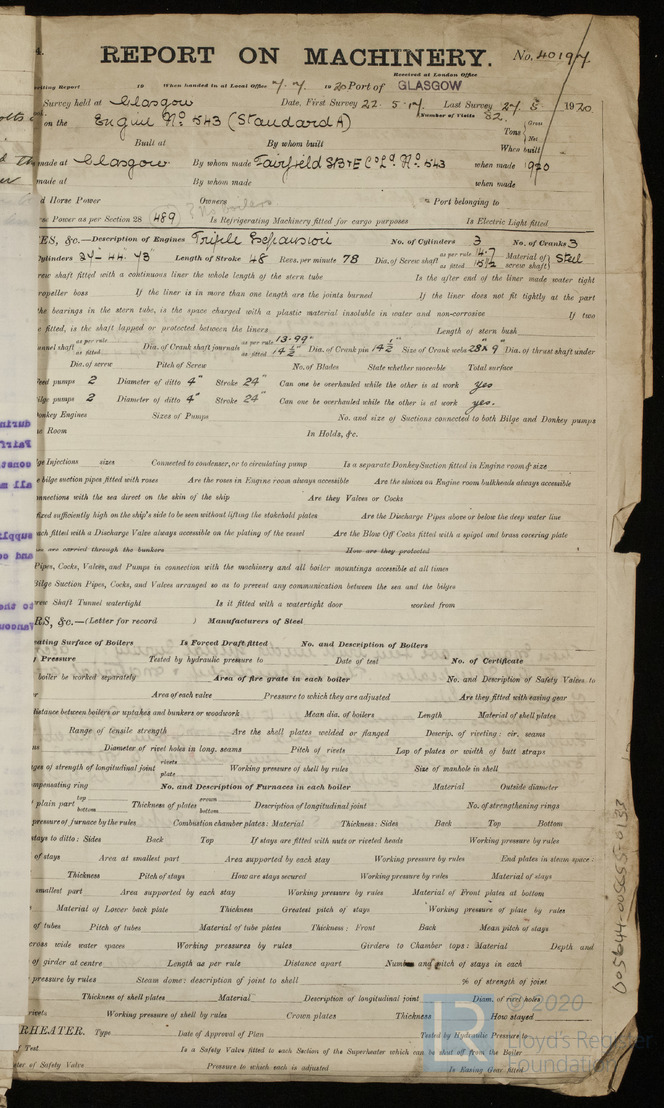 4. REPORT ON MACHINERY. No. 40197
Received at London Office
writing Report 19 When handed in at Local Office 7. 7. 1920 Port of GLASGOW
Survey held at Glasgow Date, First Survey 22. 5. 17 Last Survey 27 5 1920.
on the Engine No 543 (Standard A) Number of Visits 82.
Tons Gross Net
Built at By whom built When built
made at Glasgow By whom made Fairfield S B & E Co Ld No 543 when made 1920
made at By whom made when made
d Horse Power Owners Port belonging to
e Power as per Section 28 489 Is Refrigerating Machinery fitted for cargo purposes Is Electric Light fitted
ES, &c.—Description of Engines Triple Expansion No. of Cylinders 3 No. of Cranks 3
Cylinders 27-44-73 Length of Stroke 48 Revs. per minute 78 Dia. of Screw shaft as per rule 14.7 as fitted 15½ Material of screw shaft Steel
rew shaft fitted with a continuous liner the whole length of the stern tube Is the after end of the liner made water tight
ropeller boss If the liner is in more than one length are the joints burned If the liner does not fit tightly at the part
the bearings in the stern tube, is the space charged with a plastic material insoluble in water and non-corrosive If two
e fitted, is the shaft lapped or protected between the liners Length of stern bush
unnel shaft as per rule as fitted Dia. of Crank shaft journals as per rule 13.99" as fitted 14½" Dia. of Crank pin 14½" Size of Crank webs 28 x 9" Dia. of thrust shaft under
Dia. of screw Pitch of Screw No. of Blades State whether moveable Total surface
Feed pumps 2 Diameter of ditto 4" Stroke 24" Can one be overhauled while the other is at work yes
ilge pumps 2 Diameter of ditto 4" Stroke 24" Can one be overhauled while the other is at work yes.
onkey Engines Sizes of Pumps No. and size of Suctions connected to both Bilge and Donkey pumps
e Room In Holds, &c.
lge Injections sizes Connected to condenser, or to circulating pump Is a separate Donkey Suction fitted in Engine room & size
e bilge suction pipes fitted with roses Are the roses in Engine room always accessible Are the sluices on Engine room bulkheads always accessible
onnections with the sea direct on the skin of the ship Are they Valves or Cocks
fixed sufficiently high on the ship's side to be seen without lifting the stokehold plates Are the Discharge Pipes above or below the deep water line
ach fitted with a Discharge Valve always accessible on the plating of the vessel Are the Blow Off Cocks fitted with a spigot and brass covering plate
es are carried through the bunkers How are they protected
Pipes, Cocks, Valves, and Pumps in connection with the machinery and all boiler mountings accessible at all times
Bilge Suction Pipes, Cocks, and Valves arranged so as to prevent any communication between the sea and the bilges
rew Shaft Tunnel watertight Is it fitted with a watertight door worked from
RS, &c.—(Letter for record ) Manufacturers of Steel
eating Surface of Boilers Is Forced Draft fitted No. and Description of Boilers
Pressure Tested by hydraulic pressure to Date of test No. of Certificate
boiler be worked separately Area of fire grate in each boiler No. and Description of Safety Valves to
r Area of each valve Pressure to which they are adjusted Are they fitted with easing gear
istance between boilers or uptakes and bunkers or woodwork Mean dia. of boilers Length Material of shell plates
Range of tensile strength Are the shell plates welded or flanged Descrip. of riveting: cir. seams
ms Diameter of rivet holes in long. seams Pitch of rivets Lap of plates or width of butt straps
ges of strength of longitudinal joint rivets plate Working pressure of shell by rules Size of manhole in shell
ompensating ring No. and Description of Furnaces in each boiler Material Outside diameter
plain part top bottom Thickness of plates crown bottom Description of longitudinal joint No. of strengthening rings
pressure of furnace by the rules Combustion chamber plates: Material Thickness: Sides Back Top Bottom
stays to ditto: Sides Back Top If stays are fitted with nuts or riveted heads Working pressure by rules
of stays Area at smallest part Area supported by each stay Working pressure by rules End plates in steam space:
Thickness Pitch of stays How are stays secured Working pressure by rules Material of stays
smallest part Area supported by each stay Working pressure by rules Material of Front plates at bottom
Material of Lower back plate Thickness Greatest pitch of stays Working pressure of plate by rules
of tubes Pitch of tubes Material of tube plates Thickness: Front Back Mean pitch of stays
cross wide water spaces Working pressures by rules Girders to Chamber tops: Material Depth and
of girder at centre Length as per rule Distance apart Number and pitch of stays in each
pressure by rules Steam dome: description of joint to shell % of strength of joint
Thickness of shell plates Material Description of longitudinal joint Diam. of rivet holes
rivets Working pressure of shell by rules Crown plates Thickness How stayed
RHEATER. Type Date of Approval of Plan Tested by Hydraulic Pressure to
f Test Is a Safety Valve fitted to each Section of the Superheater which can be shut off from the Boiler
eter of Safety Valve Pressure to which each is adjusted Is Easing Gear fitted
005644-005655-0133
© 2020
Lloyd's Register
Foundation
LR